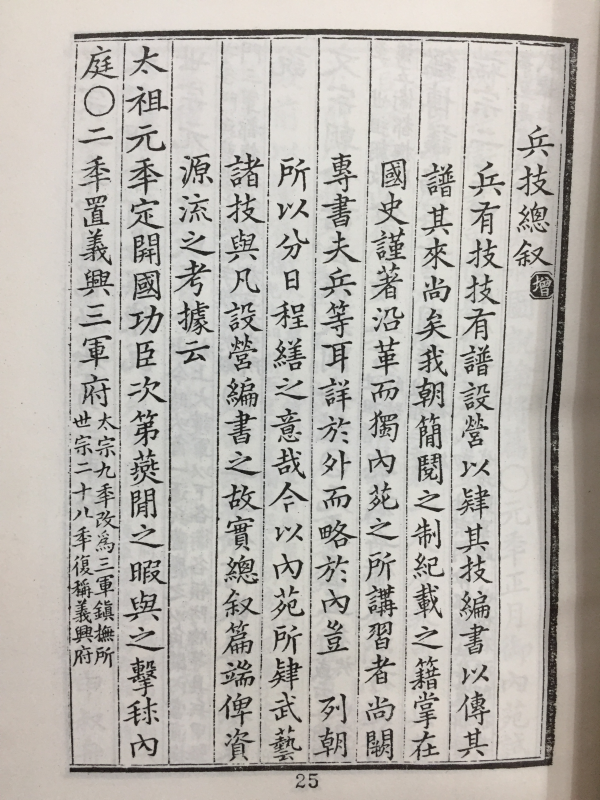 兵技總叙增
兵有技技有譜設營以肄其技編書以傳其
譜其來尚矣我朝簡閱之制紀載之籍掌在
國史謹著沿革而獨內苑之所講習者尚闕
專書夫兵等耳詳於外而略於內豈 列朝
所以分日程繕之意哉今以內苑所肄武藝
諸技與凡設營編書之故實總叙篇端俾資
源流之考據云
太祖元秊定開國功臣次第䜩閒之暇與之擊毬內
庭○二秊置義興三軍府太宗九秊改爲三軍鎭撫所
世宗二十八秊復稱義興府
25